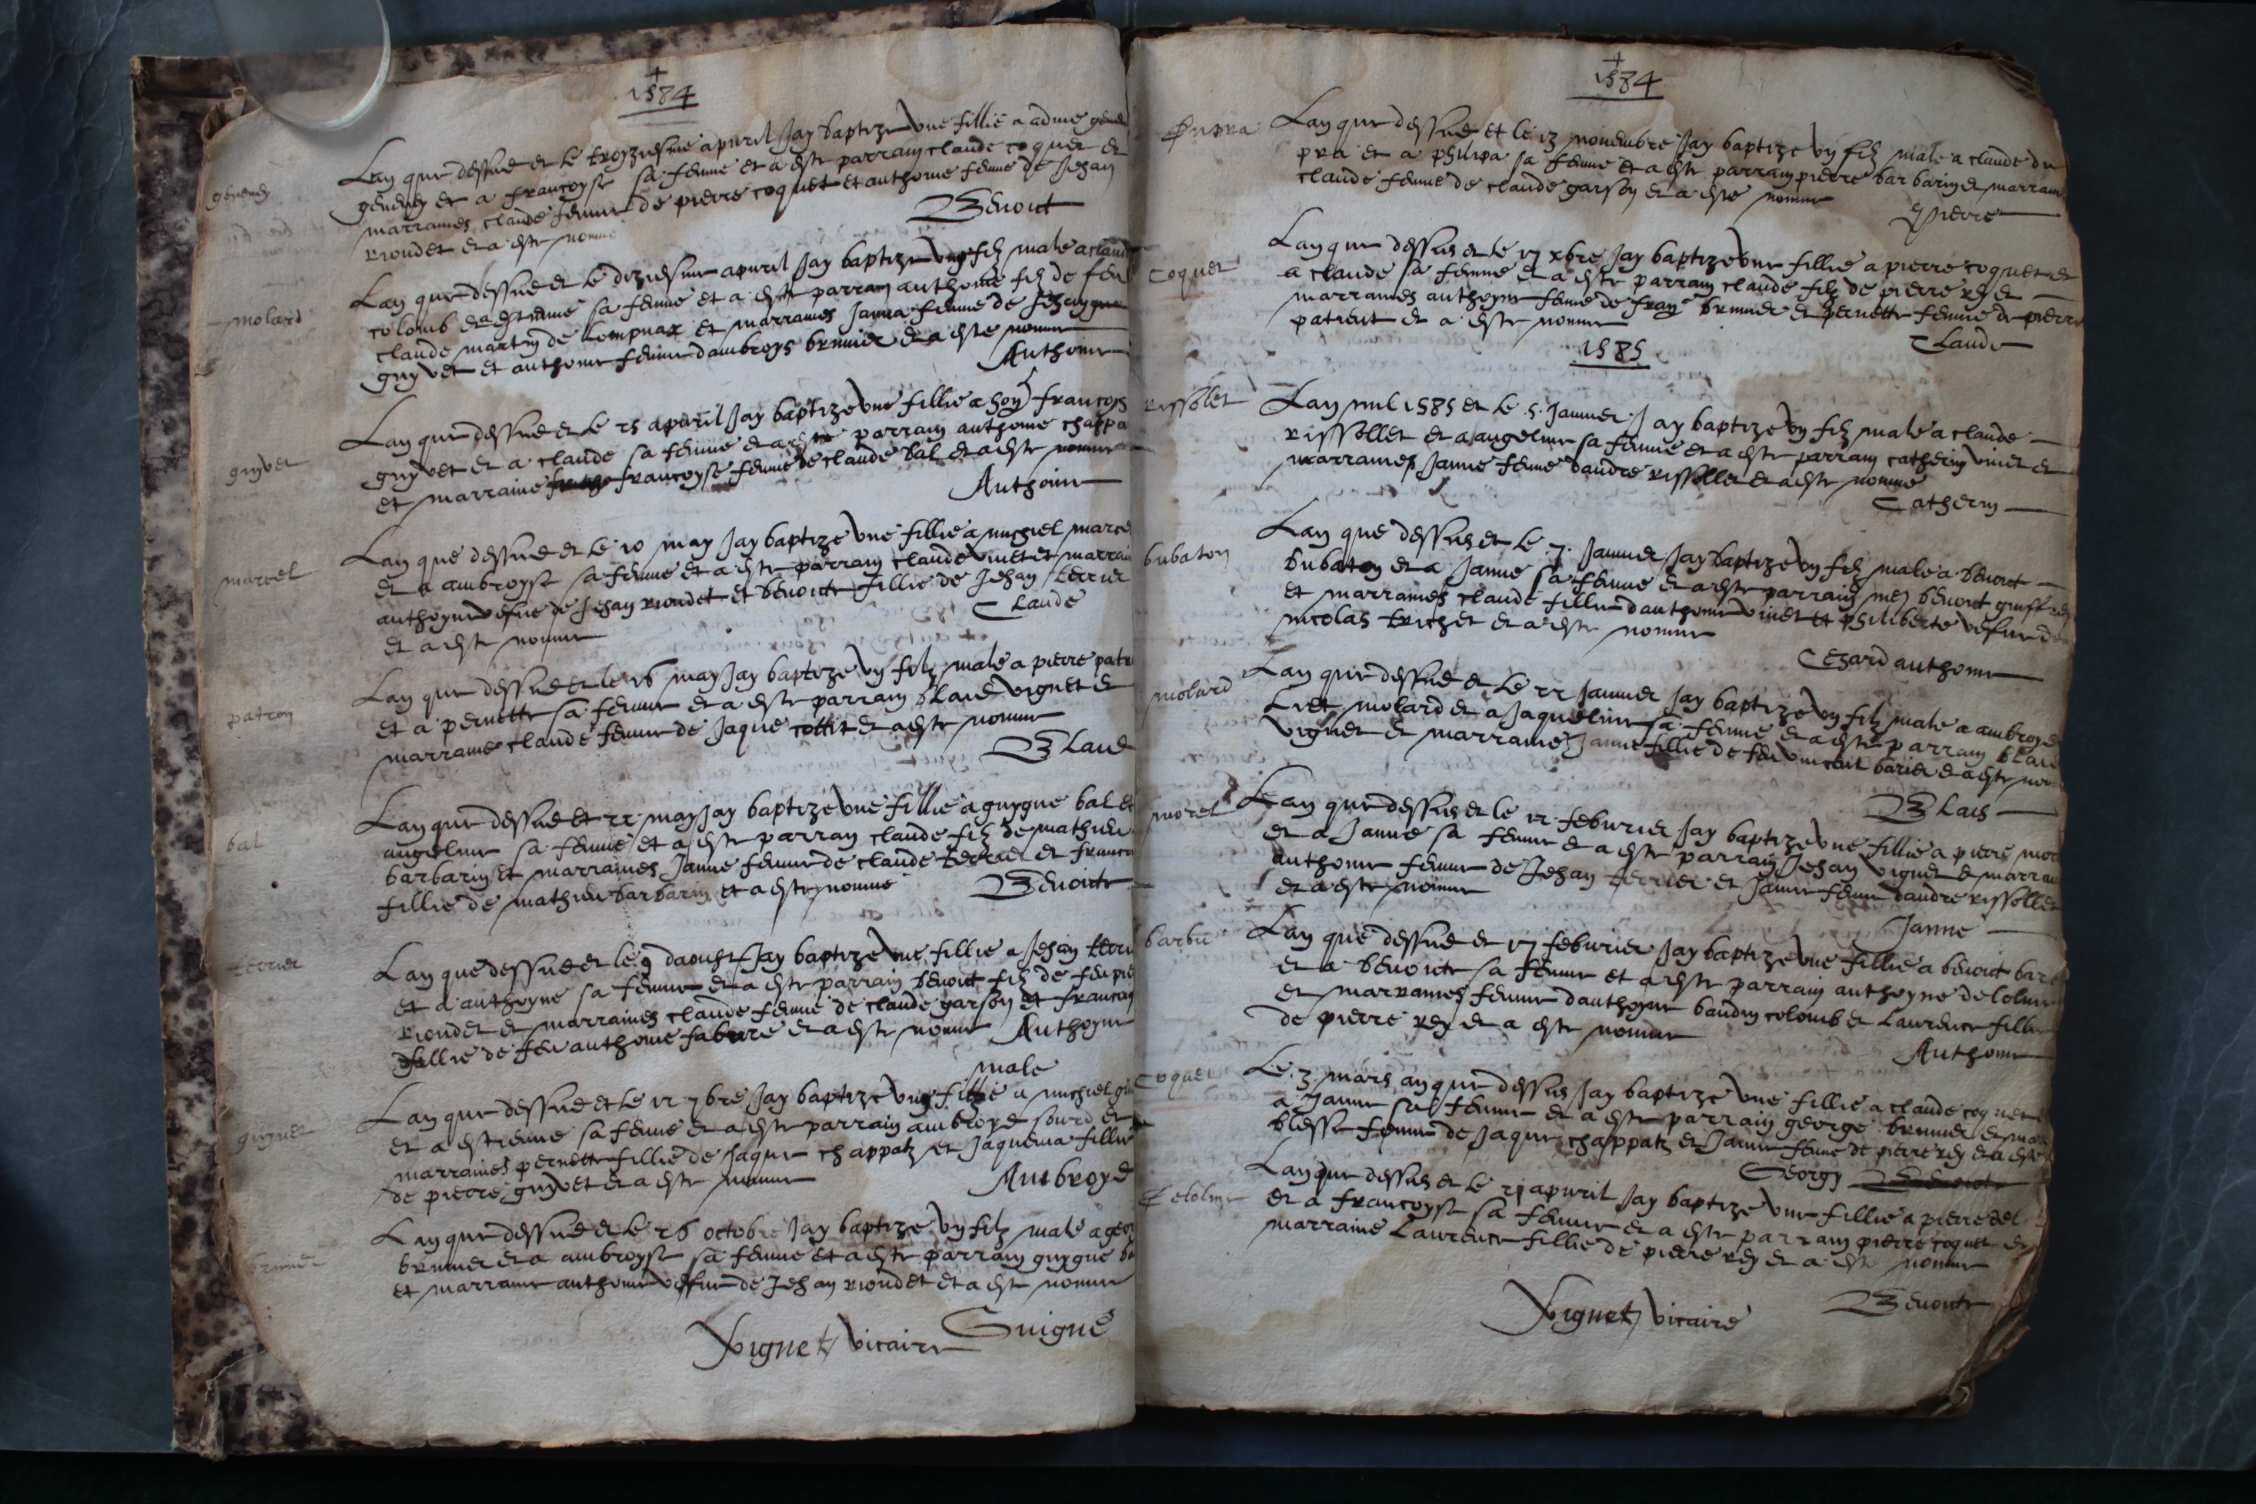 +
1584
Lan que dessus et le troyziesme apvril Jay baptize une fillie a adme
genevey
genevey et a francoyse sa femme et a este parrain claude coquet et
marraines claude femme de pierre coquet et anthoine femme de Jehan
riondet et a este nomme
Benoict
Lan que dessus et le diziesme apvril Jay baptize ung filz male a claude
molard
colomb et a estienne sa femme et a este parrain anthoine filz de feu
claude martin de et marraines Janna femme de Jehan
guyvet et anthoine femme dambroys brunier et a este nomme
Anthoine
Lan que dessus et le 25 apvril Jay baptize une fillie a francoys
guyvet
guyvet et a claude sa femme et a este parrain anthoine chappa
et marraine francoyse femme de claude bal et a este nomme
Anthoine
Lan que dessus et le 10 may Jay baptize une fillie a michiel marcel
marcel
et a ambroyse sa femme et a este parrain claude vinet et marrain
anthoyne vefue de Jehan riondet et benoicte fillie de Jehan terrier
et a este nomme
Claude
Lan que dessus et le 16 may Jay baptize ung filz male a pierre
patron
et a pernette sa femme et a este parrain blaue vignet et
marraines claude femme de Jaque cottit et a este nomme
Blaue
Lan que dessus et 22 may Jay baptize une fillie a guygue bal et
bal
angeline sa femme et a este parrain claude filz de mathieu
barbarin et marraines Janne femme de claude terrier et
fillie de mathieu barbarin et a este nomme
Benoicte
Lan que dessus et le 9 daoust Jay baptize une fillie a Jehan
terrier
et a anthoyne sa femme et a este parrain benoict filz de feu
riondet et marraines claude femme de claude garson et
fillie de feu anthoine fabvre et a este nomme Anthoyne
male
Lan que dessus et le 12 7bre Jay baptize ung a michiel
guyvet
et a estienne sa femme et a este parrain ambroye sourd et
marraines pernette fillie de Jaque chappatz et Jaquema fillie
de pierre guyvet et a este nomme
Ambroye
Lan que dessus et le 26 octobre Jay baptize ung filz male a
brunier
brunier et a ambroyse sa femme et a este parrain guygue
et marraine anthoine vefue de Jehan riondet et a este nomme
Guigue
Vignet vicaire
+
1584
Dupra
Lan que dessus et le 13 novembre Jay baptize ung filz male a claude du
pra et a philipa sa femme et a este parrain pierre barbarin et marraine
claude femme de claude garson et a este nomme
Pierre
coquet
Lan que dessus et le 17 xbre Jay baptize une fillie a pierre coquet et
a claude sa femme et a este parrain claude filz de pierre rey et
marraines anthoyne femme de brunier et pernette femme de pierre
patient et a este nomme
Claude
1585
rissolet
Lan mil 1585 et le 5 Janvier Jay baptize ung filz male a claude
rissollet et a angeline sa femme et a este parrain catherin vinet et
marraines Janne femme dandre rissollet et a este nomme
Catherin
bubaton
Lan que dessus et le 7 Janvier Jay baptize ung filz male a benoict
bubaton et a Janne sa femme et a este parrain benoict
et marraines claude fillie danthoine vinet et philiberte vefue de
nicolas trichet et a este nomme
Cesard anthoine
molard
Lan que dessus et le 22 Janvier Jay baptize ung filz male a ambroye
molard et a Jaqueline sa femme et a este parrain
vignet et marraines Janne fillie de feu vincent barier et a este
Blais
morel
Lan que dessus et le 12 febvrier Jay baptize une fillie a pierre
et a Janne sa femme et a este parrain Jehan vignet et
anthoine femme de Jehan terrier et Janne femme dandre rissollet
et a este nomme
Janne
barbu
Lan que dessus et 17 febvrier Jay baptize une fillie a benoict
et a benoicte sa femme et a este parrain anthoyne delolme
et marraines femme danthoyne baudin colomb et Laurence fillie
de pierre rey et a este nomme
Anthoine
coquet
Le 3 mars an que dessus Jay baptize une fillie a claude coquet
a Janne sa femme et a este parrain george brunier et
femme de Jaque chappatz et Janne femme de pierre rey et a este
Georgy
delolme
Lan que dessus et le 21 apvril Jay baptize une fillie a pierre
et a francoyse sa femme et a este parrain pierre coquet et
marraine Laurence fillie de pierre rey et a este nomme
Benoicte
Vignet vicaire